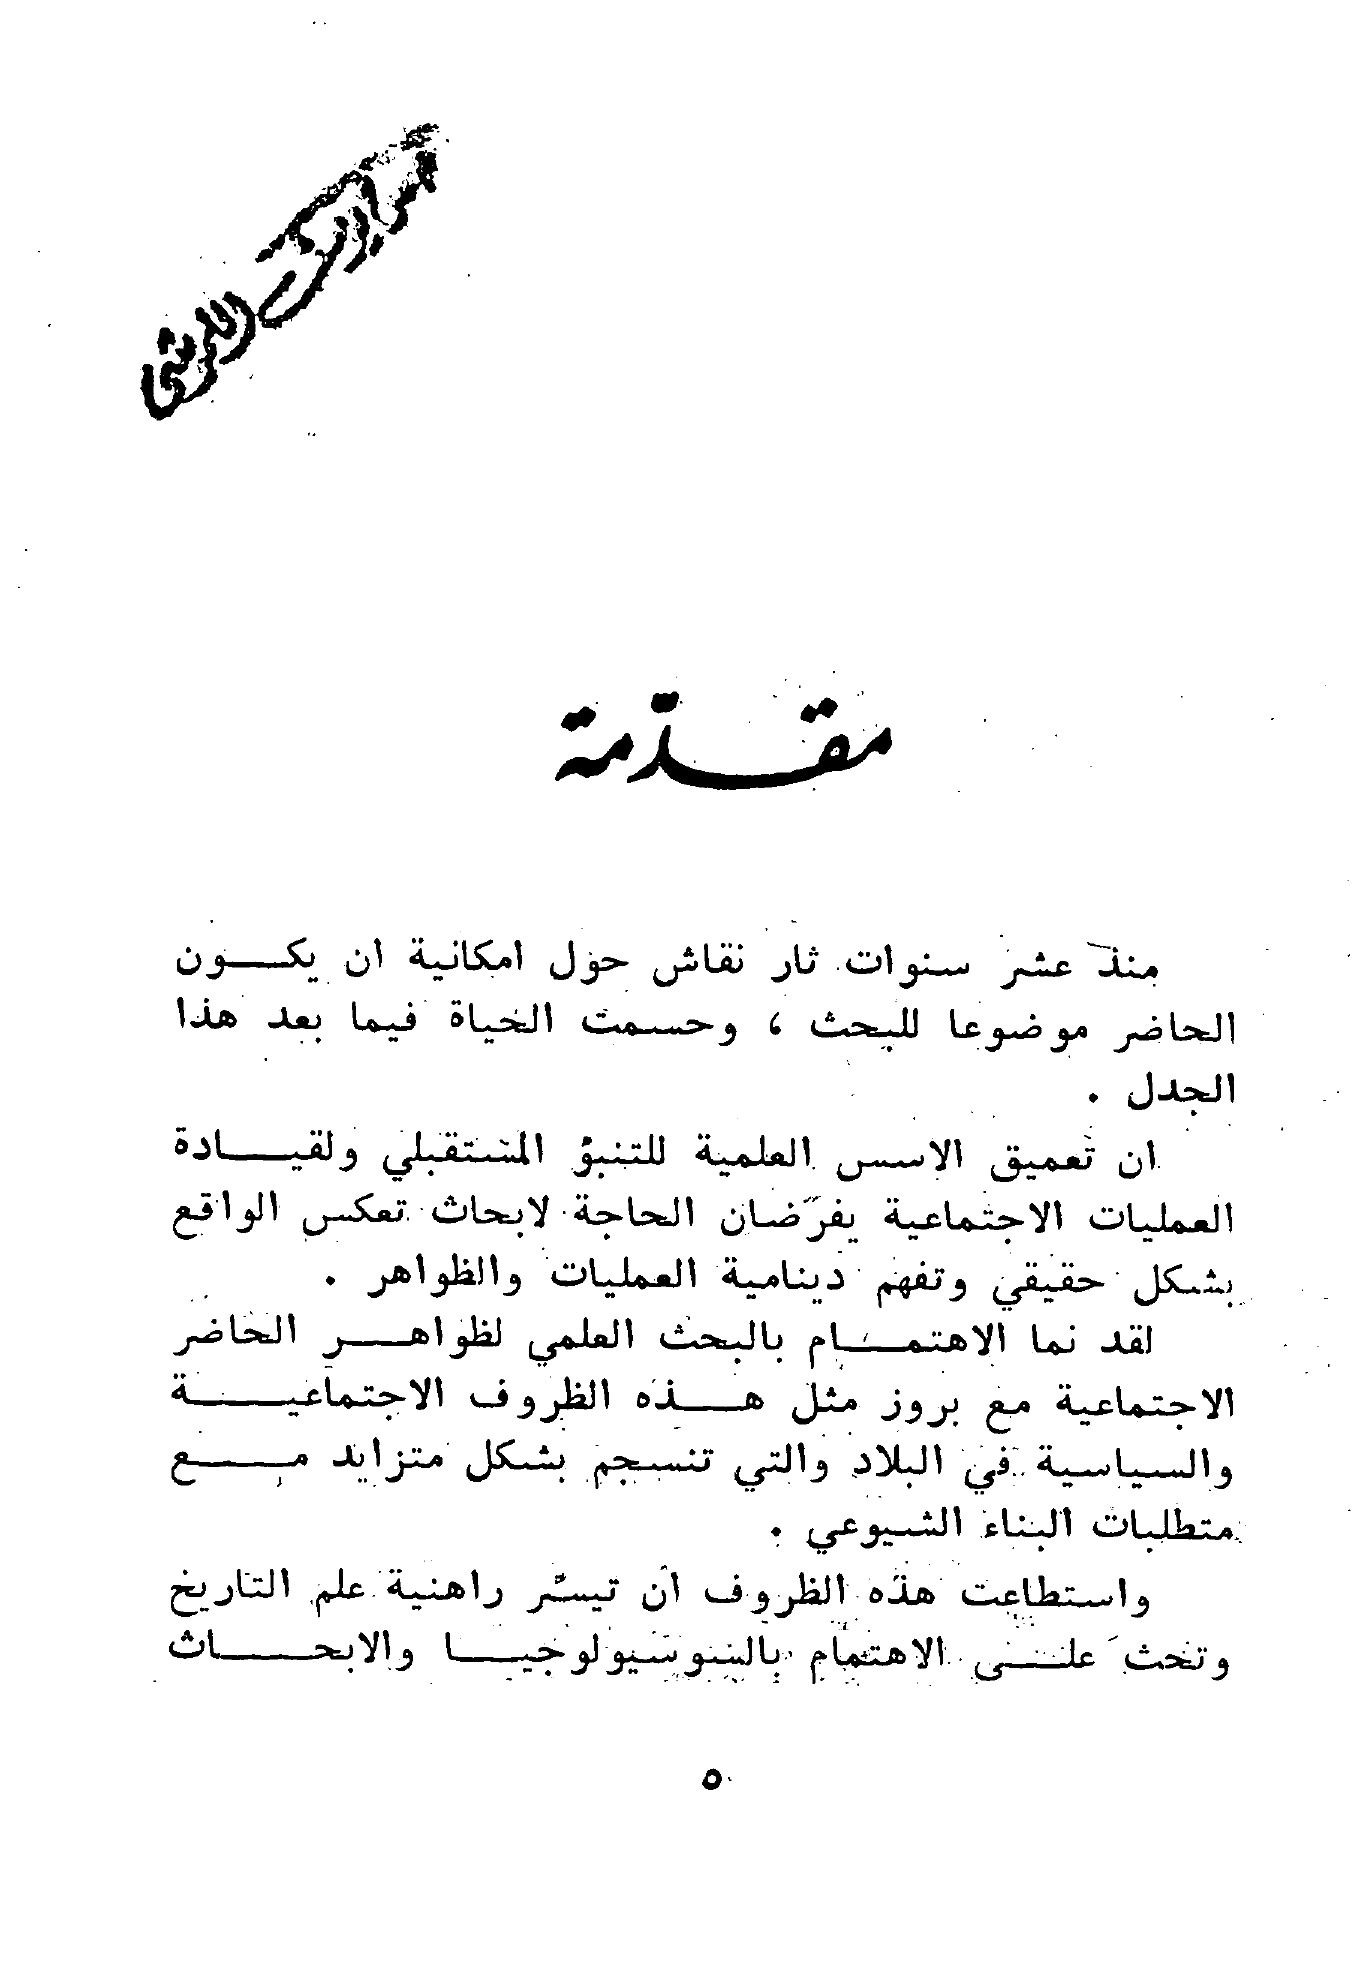 مقدّمة
منذ عشر سنوات ثار نقاش حول امكانية ان يكون
الحاضر موضوعا للبحث ، وحسمت الحياة فيما بعد هذا
الجدل .
ان تعميق الاسس العلمية للتنبؤ المستقبلي ولقيادة
العمليات الاجتماعية يفرضان الحاجة لابحاث تعكس الواقع
بشكل حقيقي وتفهم دينامية العمليات والظواهر .
لقد نما الاهتمام بالبحث العلمي لظواهر الحاضر
الاجتماعية مع بروز مثل هذه الظروف الاجتماعية
والسياسية في البلاد والتي تنسجم بشكل متزايد مع
متطلبات البناء الشيوعي .
واستطاعت هذه الظروف ان تيسّر راهنية علم التاريخ
وتحث على الاهتمام بالسوسيولوجيا والابحاث
٥